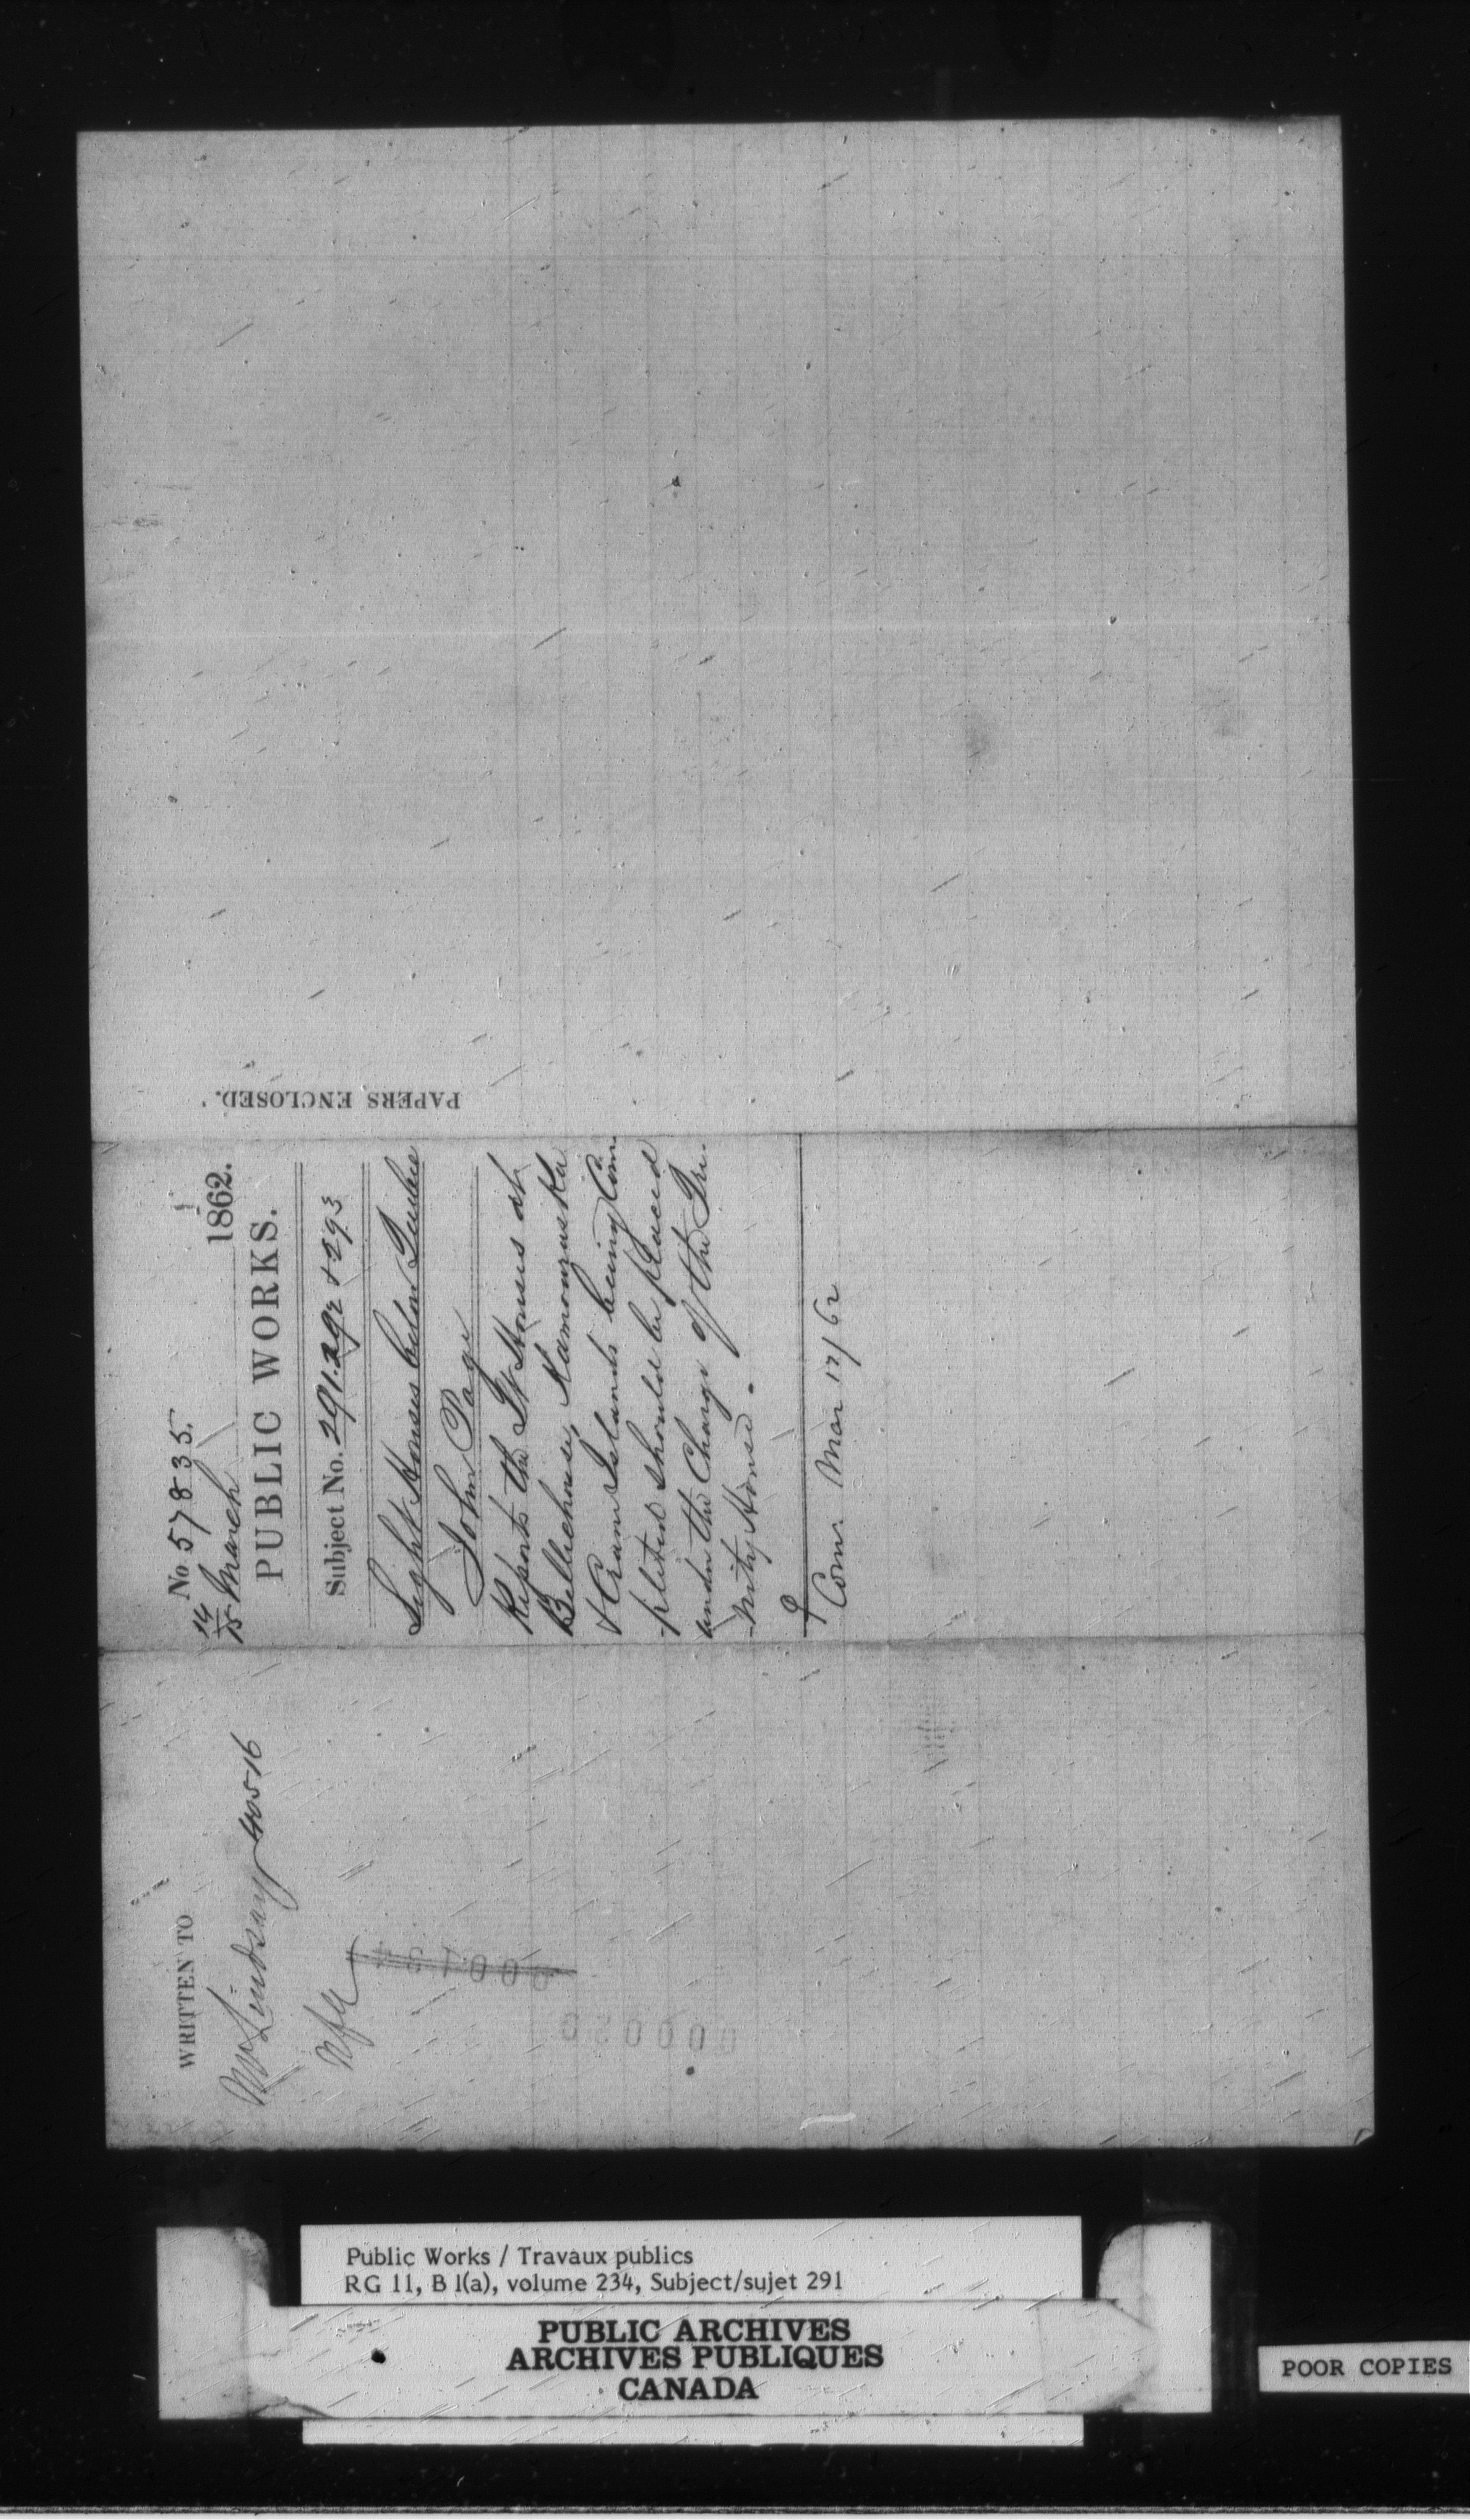 PAPERS ENCLOSED.
No 57835.
14/15 March 1862.
PUBLIC WORKS.
Subject No. 291.292 & 293
Light Houses below Quebec
John Page
Reports the Lt Houses at
Bellechasse, Kamouraska
& Crane Islands being Com-
pleted should be placed
under the Charge of the Tri-
nity House.
Com. Mar 17/62
WRITTEN TO
Mr Lindsay 40516
000134
000020
Public Works / Travaux publics
RG 11, B 1(a), volume 234, Subject/sujet 291
PUBLIC ARCHIVES
ARCHIVES PUBLIQUES
CANADA
POOR COPIES